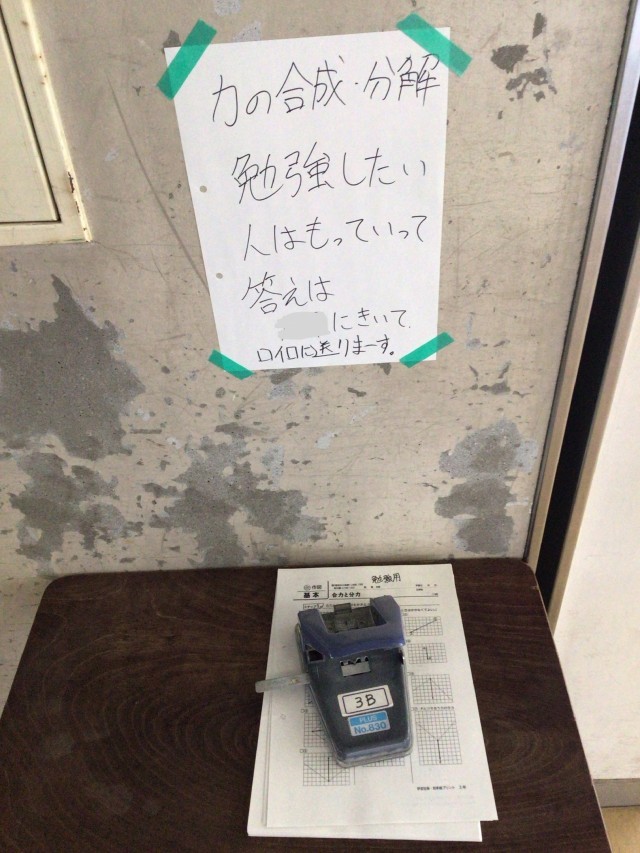 力の合成・分解
勉強したい
人はもっていって
答えは
にきいて
ロイロに送りまーす。
勉強用
基本
合力と分力
3B
PLUS
No.630